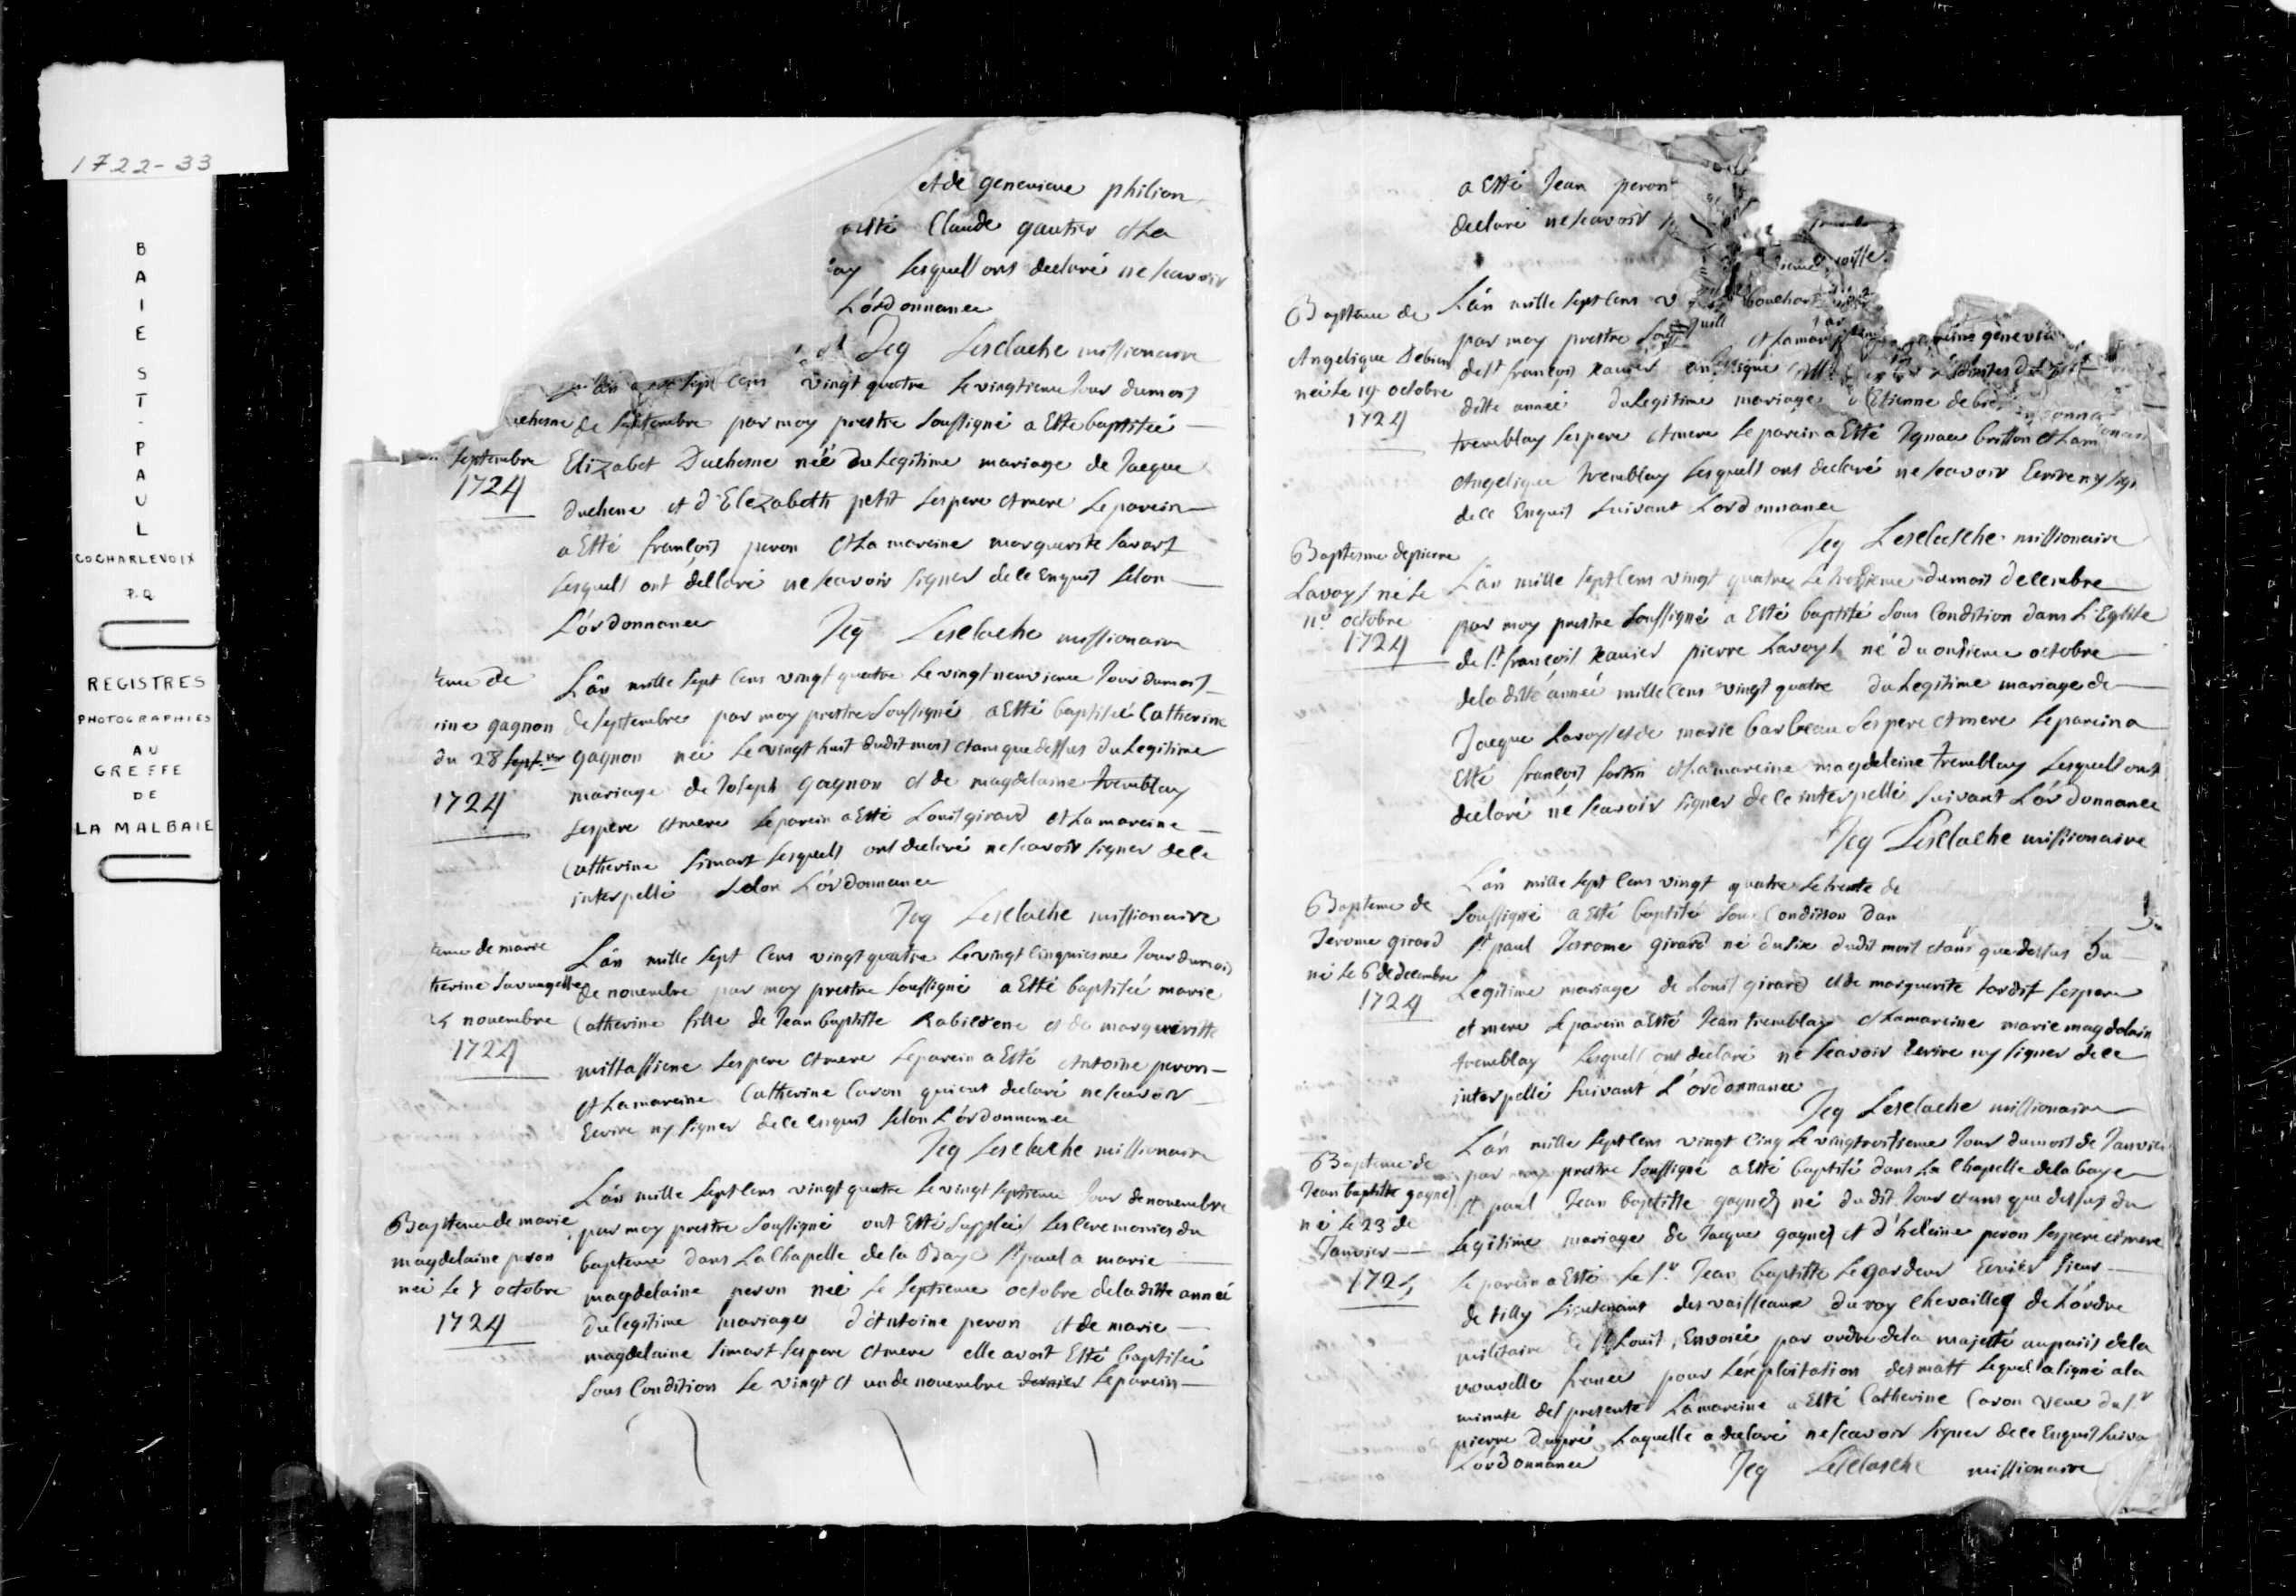 1722-33
BAIE ST-PAUL
CO CHARLEVOIX
P.Q
REGISTRES
PHOTOGRAPHIES
AU
GREFFE
DE
LA MALBAIE
et de genevieve philion
a esté Claude gautier et la
ay lesquels ons declaré ne scavoir
L'ordonnance
Jcq Lesclache missionaire
sept cens vingt quatre le vingtieme Jour du mois
uchesne de septembre par moy prestre soussigné a Esté baptisée
septembre
1724
Elizabet Duchesne née du Legitime mariage de Jacque
duchene et d'Elezabeth petit ses pere et mere Le parein
a Esté françois peron et La mareine marguerite savart
lesquels ont declaré ne scavoir signer de ce Enquis selon
L'ordonnance
Jcq Lesclache missionaire
teme de
rine gagnon
du 28 sept.bre
1724
L'an mille sept cens vingt quatre le vingt neuvieme Jour du mois
de septembre par moy prestre soussigné a Esté baptisée Catherine
gagnon neé le vingt huit dudit mois et ans que dessus du Legitime
mariage de Joseph gagnon et de magdelaine tremblay
ses pere et mere le parein a Esté Louis girard et La mareine
Catherine simart lesquels ont declaré ne scavoir signer de ce
interpellé selon L'ordonnance
Jcq Lesclache missionaire
teme de marie
therine sauvagesse
novembre
1724
L'an mille sept cens vingt quatre le vingt cinquiesme Jour du mois
de novembre par moy prestre soussigné a Esté baptisée marie
Catherine fille de Jean baptiste et de margueritte
mistassiene ses pere et mere Le parein a Esté Antoine peron
et La mareine Catherine Caron qui ont declaré ne scavoir
Ecrire ny signer de ce enquis selon L'ordonnance
Jcq Lesclache missionaire
Bapteme de marie
magdelaine peron
neé le 7 octobre
1724
L'an mille sept cens vingt quatre le vingt septieme Jour de novembre
par moy prestre soussigné ont Esté suppleés les ceremonies du
bapteme dans La Chapelle de la Baye st paul a marie
magdelaine peron neé le septieme octobre de la ditte année
du legitime mariage d'Antoine peron et de marie
magdelaine simart ses pere et mere elle avoit Esté baptisée
sous Condition le vingt et un de novembre dernier le parein
a Esté Jean peron
declaré ne scavoir
Bapteme de
Angelique Debien
neé le 19 octobre
1724
L'an mille sept cens bouchart
par moy prestre et La mareine genevie
de st françois xavier
ditte anneé du Legitime mariage Etienne debie
tremblay ses pere et mere le parein a Esté Ignace britton et La m
Angelique tremblay lesquels ont declaré ne scavoir Ecrire ny sign
de ce Enquis suivant L'ordonnance
Jcq Lesclasche missionaire
Baptesme de pierre
Lavoys né le
11e octobre
1724
L'an mille sept cens vingt quatre le troisieme du mois decembre
par moy prestre soussigné a Esté baptisé sous Condition dans L'Eglise
de st françois xavier pierre Lavoys né du onzieme octobre
de la ditte anneé mille cens vingt quatre du Legitime mariage de
Jacque Lavoys et de marie barbeau ses pere et mere le parein a
Esté françois fortin et La mareine magdeleine tremblay lesquels ont
declaré ne scavoir signer de ce interpellé suivant L'ordonnance
Jcq Lesclache missionaire
Bapteme de
Jerome girard
né le 6 de decembre
1724
L'an mille sept cens vingt quatre le trente de
soussigné a Esté baptisé sous Condition dan
st paul Jerrome girard né du six dudit mois et ans que dessus du
Legitime mariage de Louis girard et de marguerite tardif ses pere
et mere Le parein a Esté Jean tremblay et La mareine marie magdelain
tremblay lesquels ont declaré ne scavoir Ecrire ny signer de ce
interpellé suivant L'ordonnance
Jcq Lesclache missionaire
Bapteme de
Jean baptiste gagnez
né le 23 de
Janvier
1725
L'an mille sept cens vingt cinq le vingtroisieme Jour du mois de Janvier
par moy prestre soussigné a Esté baptisé dans La Chapelle de la baye
st paul Jean baptiste gagnez né du dit Jour et ans que dessus du
Legitime mariage de Jacque gagnez et d'heleine peron ses pere et mere
Le parein a Esté le sr Jean baptiste Legardeur Ecuier sieur
de tilly Lieutenant des vaisseaux du roy chevaillez de L'ordre
militaire de st Louis, Envoiée par ordre de sa majesté au païs de la
nouvelle france pour L'exploitation des matt lequel a signé a la
minute des presente La mareine a Esté Catherine Caron veuve du sr
pierre dupré Laquelle a declaré ne scavoir signer de ce Enquis suiva
L'ordonnance
Jcq Lesclasche missionaire